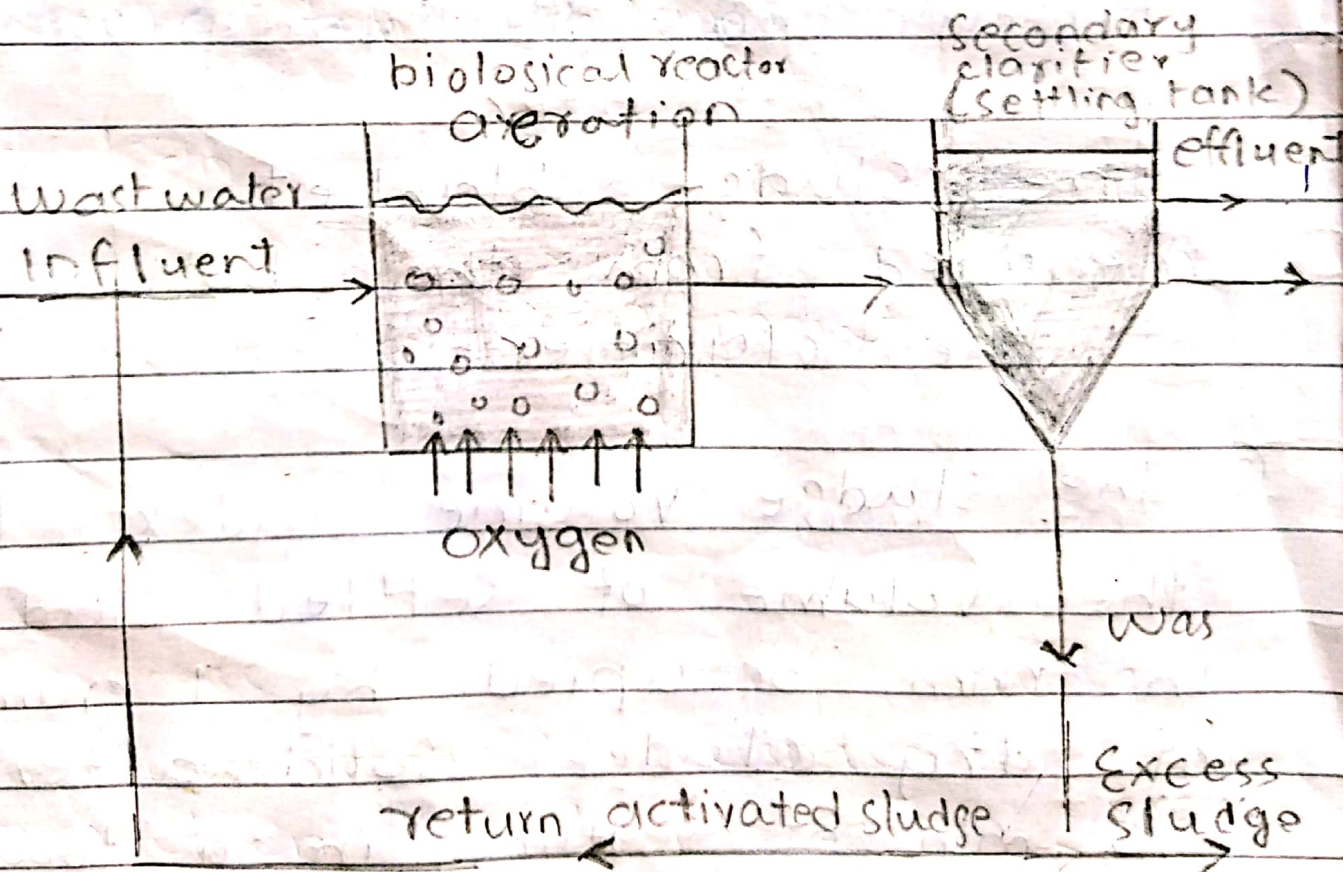 biological reactor
aeration
Secondary
clarifier
(settling tank)
effluent
wastwater
Influent
oxygen
was
Excess
sludge
return activated sludge